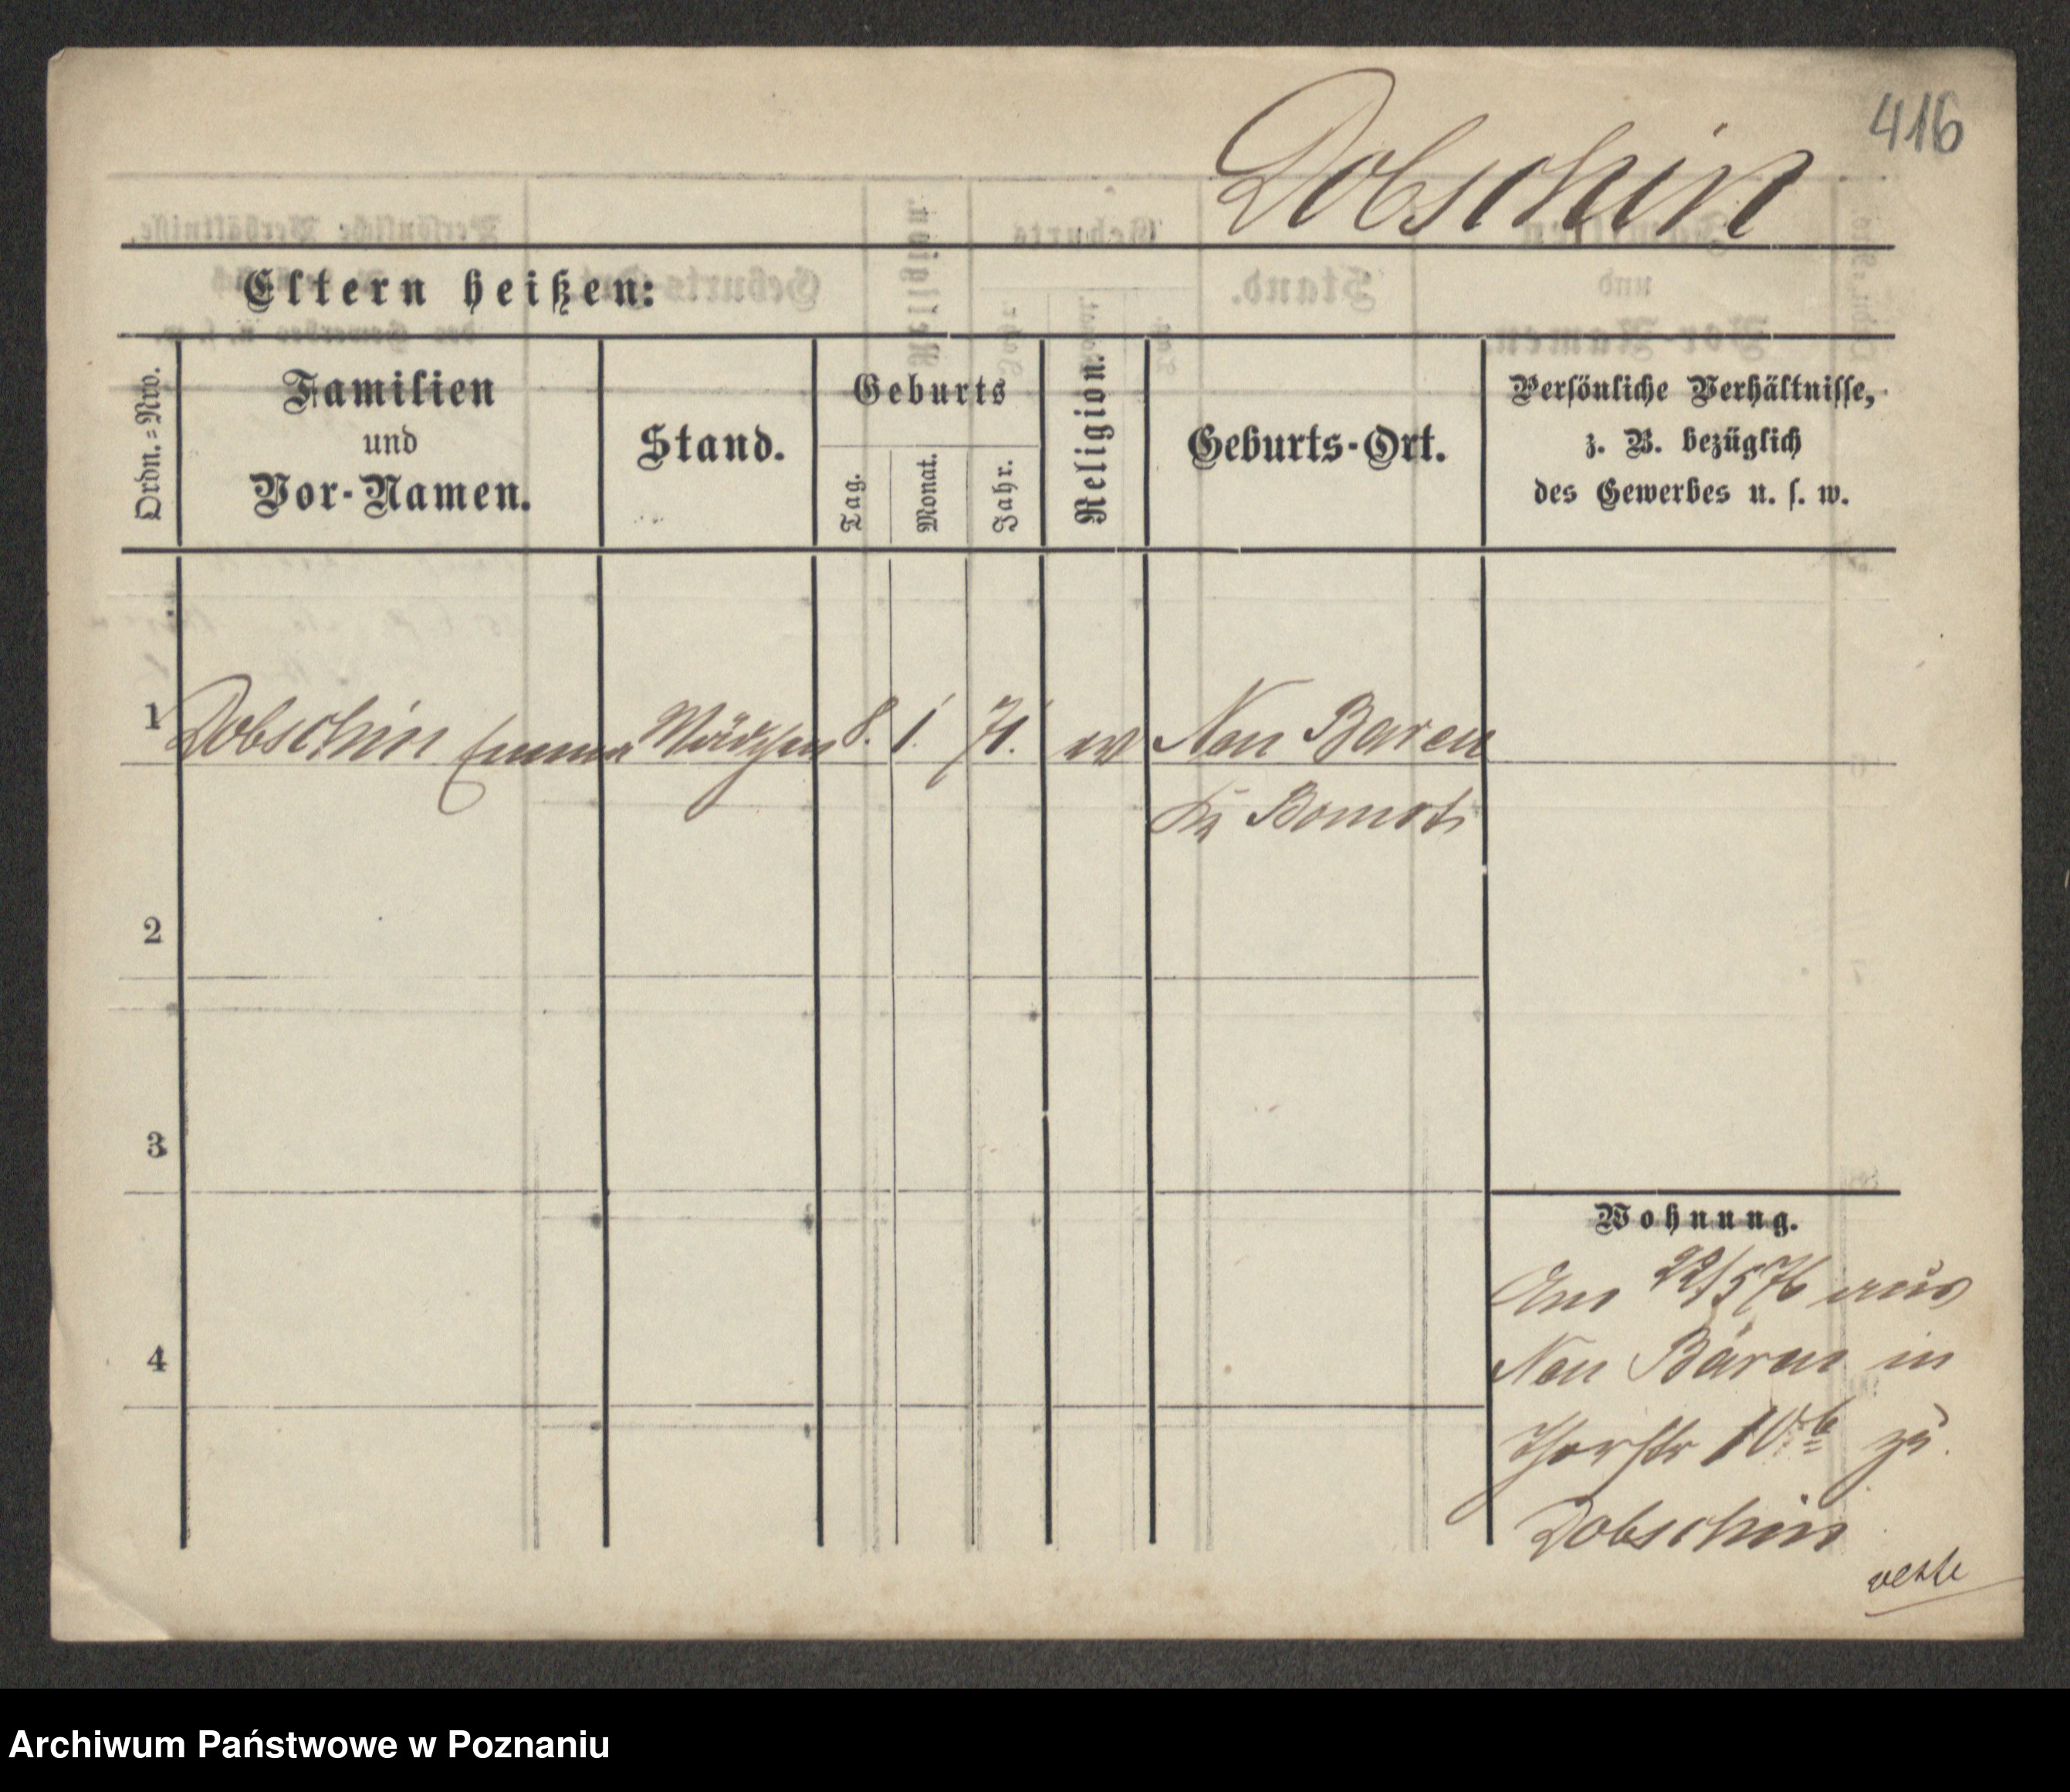 416
Dobschin
Eltern heißen:
Ordn.=Nro.
Familien
und
Vor-Namen.
Stand.
Geburts
Tag.
Monat.
Jahr.
Religion.
Geburts-Ort.
Persönliche Verhältnisse,
z. B. bezüglich
des Gewerbes u. s. w.
1 Dobschin Emma Mädchen 8. 1. 71. ev Neu Baren
Kr Bomst
2
3
4
Wohnung.
Am 22/5 76 aus
Neu Bären in
Thorstr 10b zu
Dobschin
Archiwum Państwowe w Poznaniu